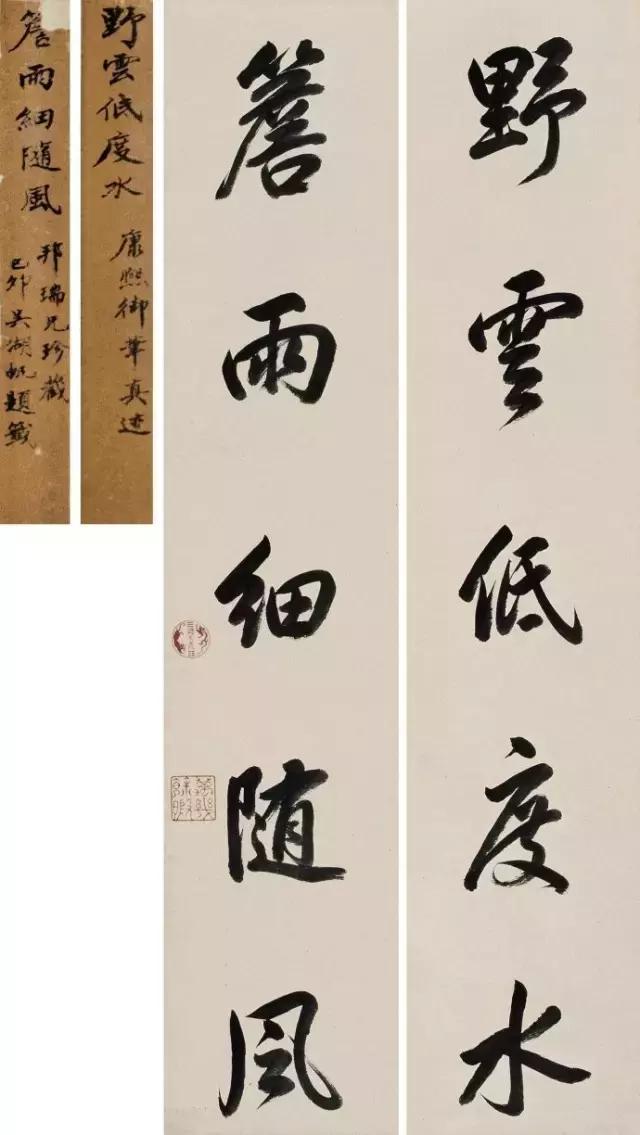 野雲低度水
簷雨細随風
萬幾
餘暇
野雲低度水
康熙御筆真迹
簷雨細隨風
邦瑞兄珍藏
己卯吳湖帆題籤